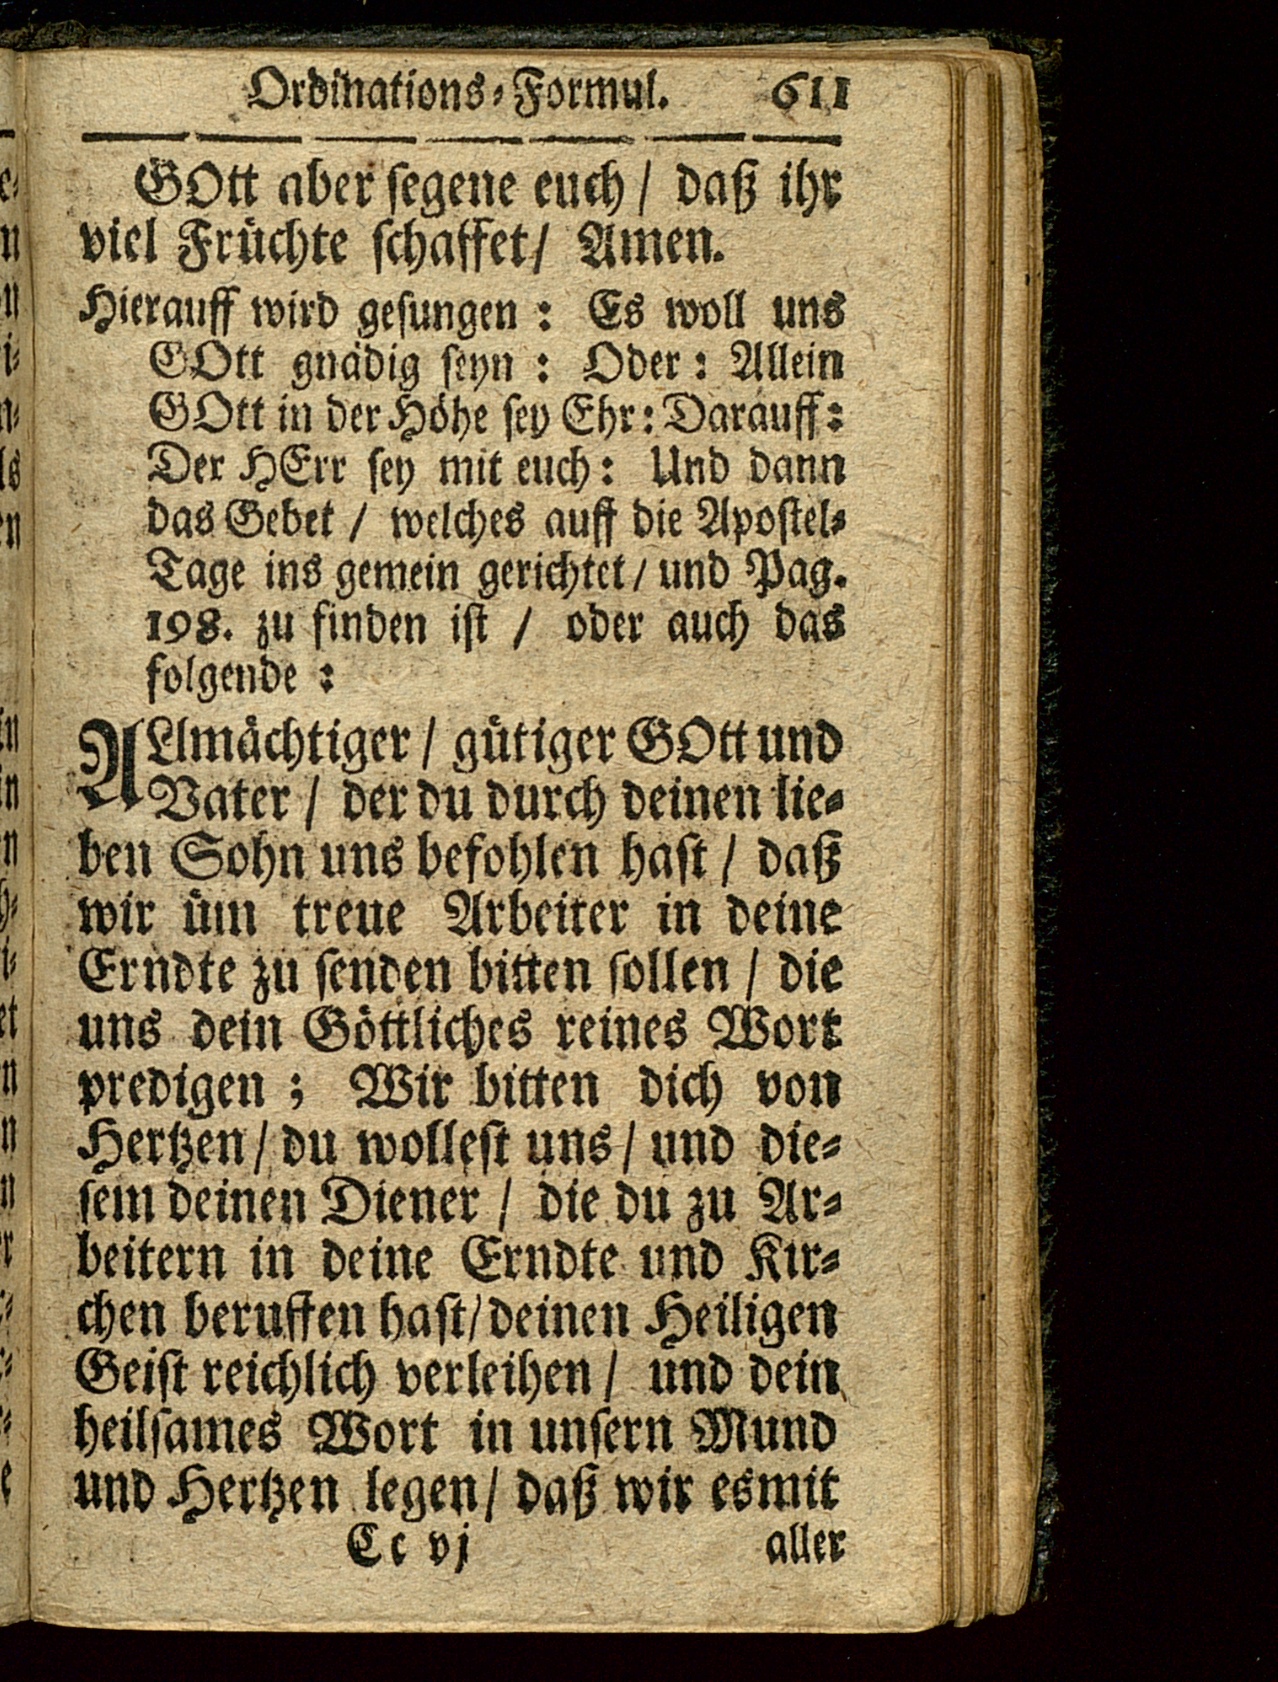 Ordinations-Formul. 611
GOtt aber segene euch / daß ihr
viel Früchte schaffet / Amen.
Hierauff wird gesungen : Es woll uns
GOtt gnädig seyn : Oder : Allein
GOtt in der Höhe sey Ehr : Darauff :
Der HErr sey mit euch : Und dann
das Gebet / welches auff die Apostel-
Tage ins gemein gerichtet / und Pag.
198. zu finden ist / oder auch das
folgende :
ALlmächtiger / gütiger GOtt und
Vater / der du durch deinen lie-
ben Sohn uns befohlen hast / daß
wir üm treue Arbeiter in deine
Erndte zu senden bitten sollen / die
uns dein Göttliches reines Wort
predigen ; Wir bitten dich von
Hertzen / du wollest uns / und die-
sem deinen Diener / die du zu Ar-
beitern in deine Erndte und Kir-
chen beruffen hast / deinen Heiligen
Geist reichlich verleihen / und dein
heilsames Wort in unsern Mund
und Hertzen legen / daß wir es mit
Cc vj aller